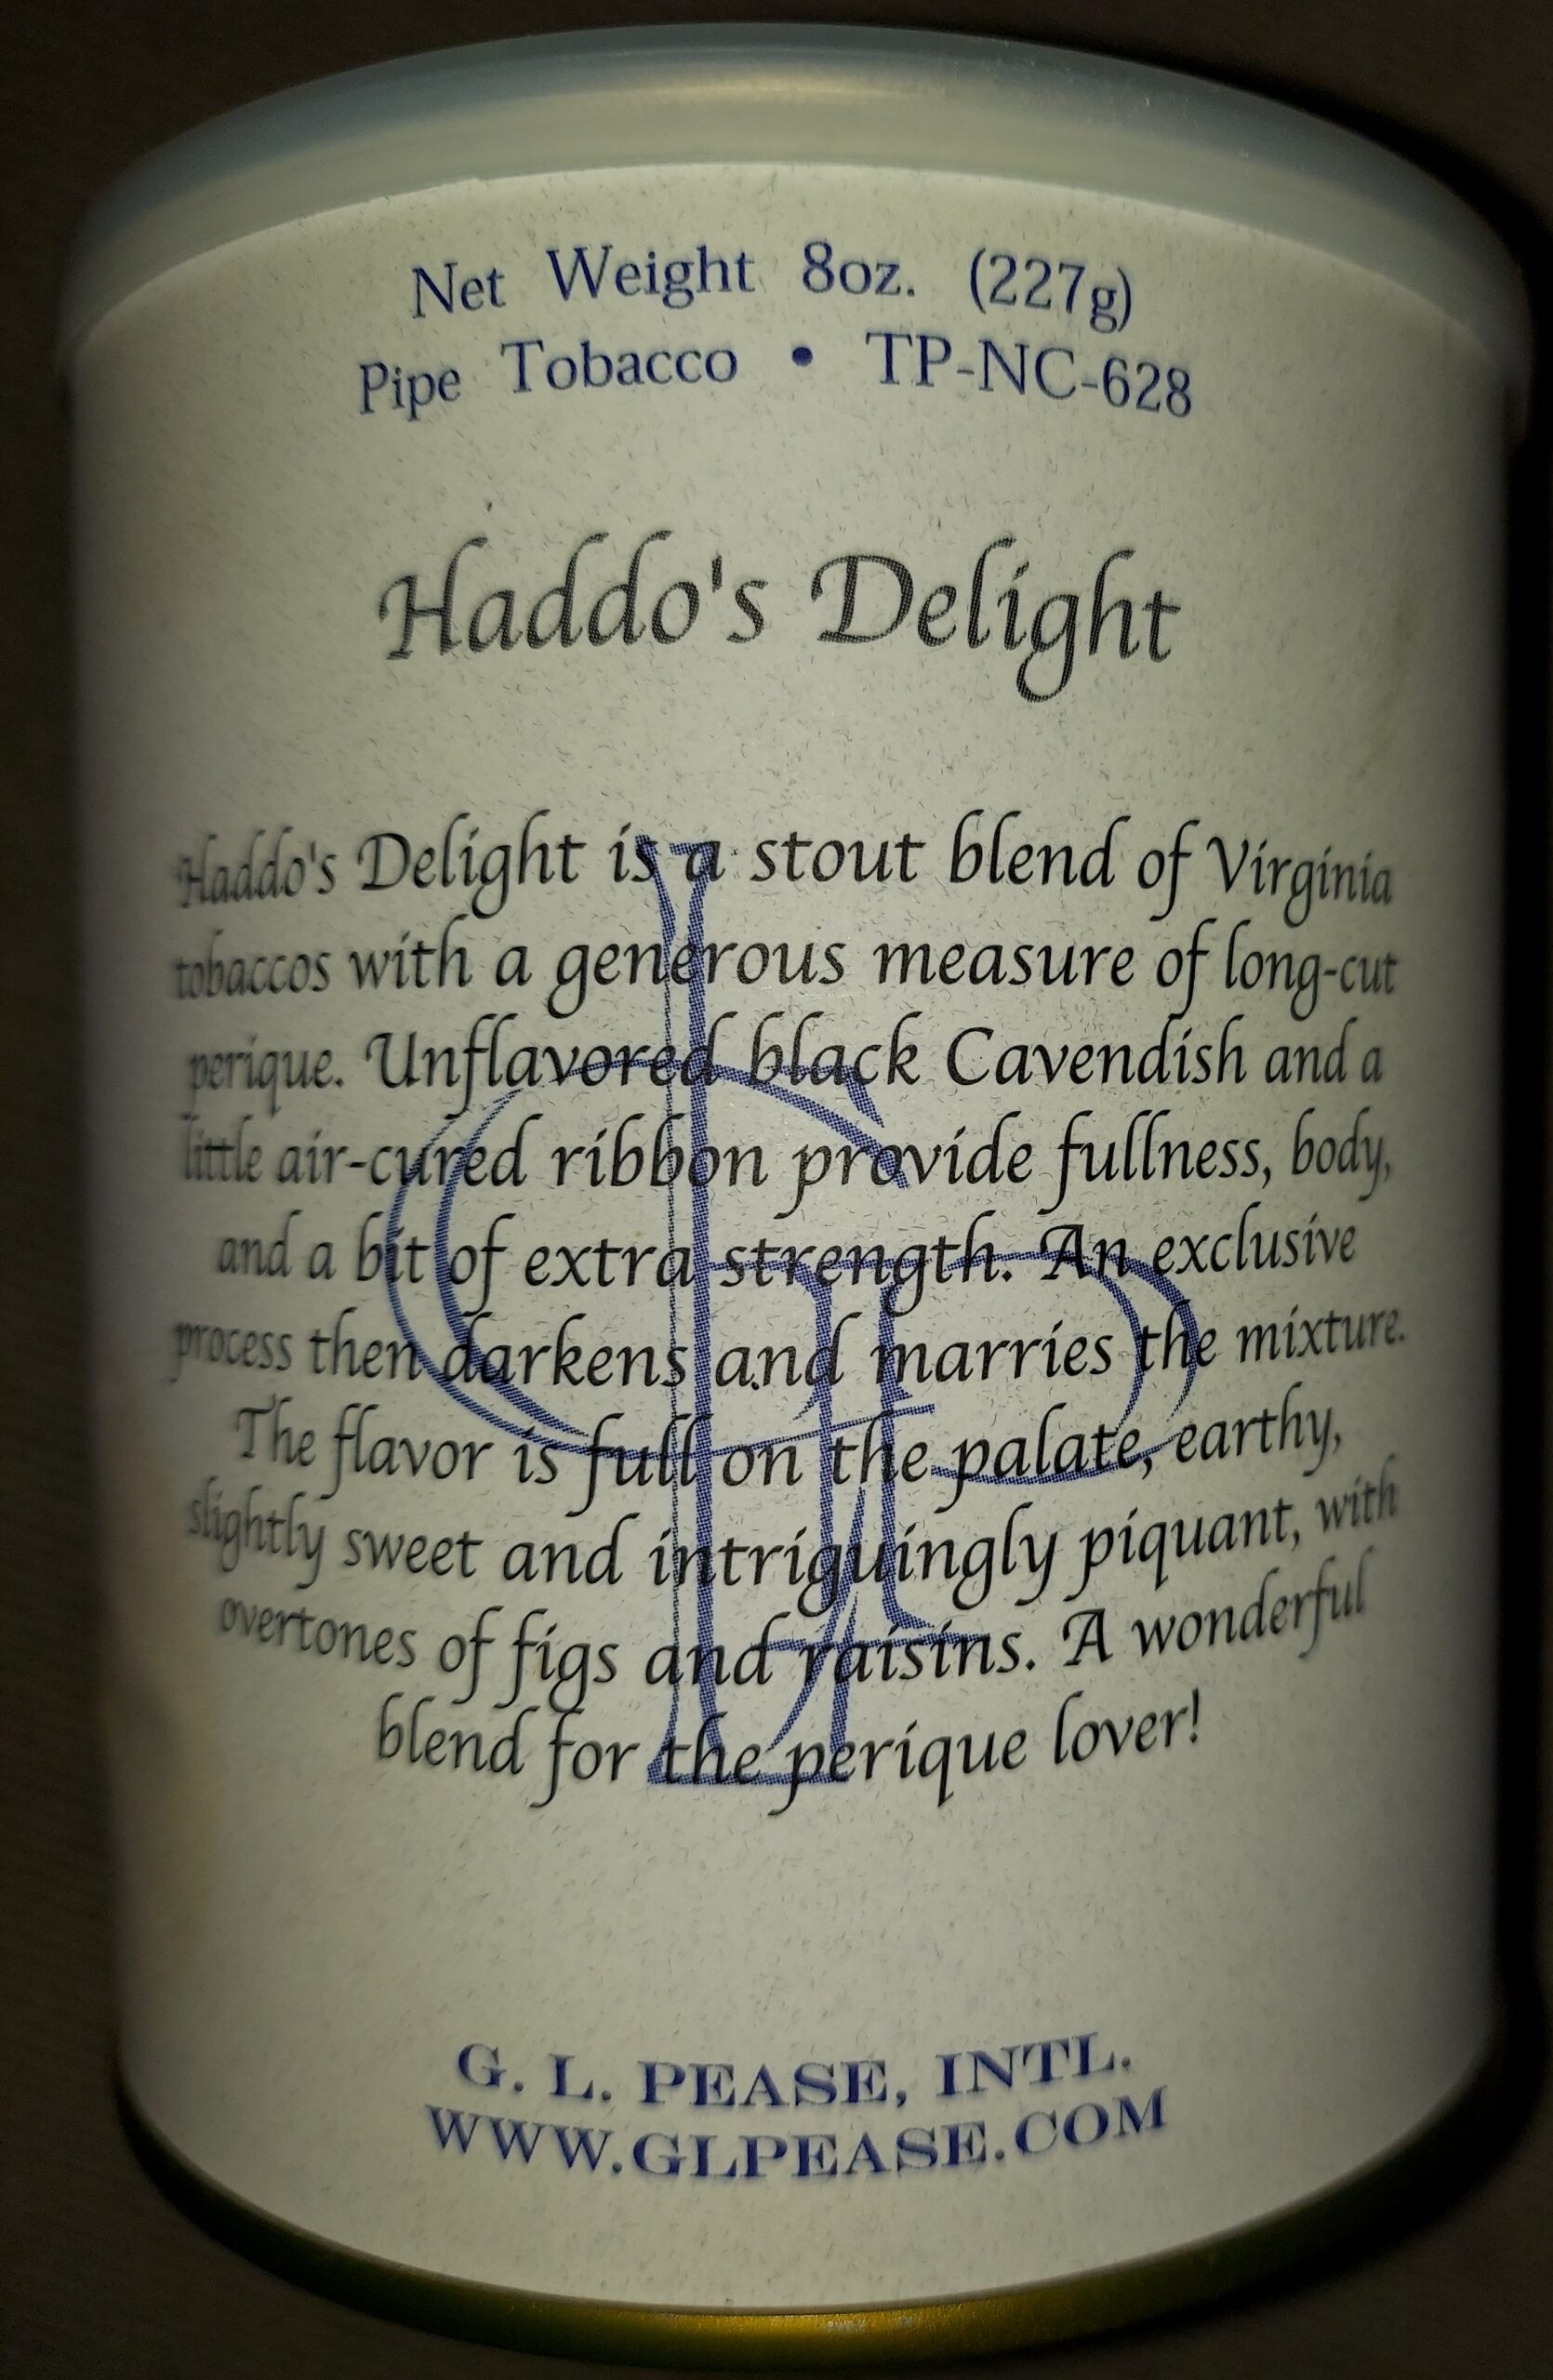 Net Weight 8oz. (227g)
Pipe Tobacco • TP-NC-628
Haddo's Delight
Haddo's Delight is a stout blend of Virginia
tobaccos with a generous measure of long-cut
perique. Unflavored black Cavendish and a
little air-cured ribbon provide fullness, body,
and a bit of extra strength. An exclusive
process then darkens and marries the mixture.
The flavor is full on the palate, earthy,
slightly sweet and intriguingly piquant, with
overtones of figs and raisins. A wonderful
blend for the perique lover!
G. L. PEASE, INTL.
WWW.GLPEASE.COM